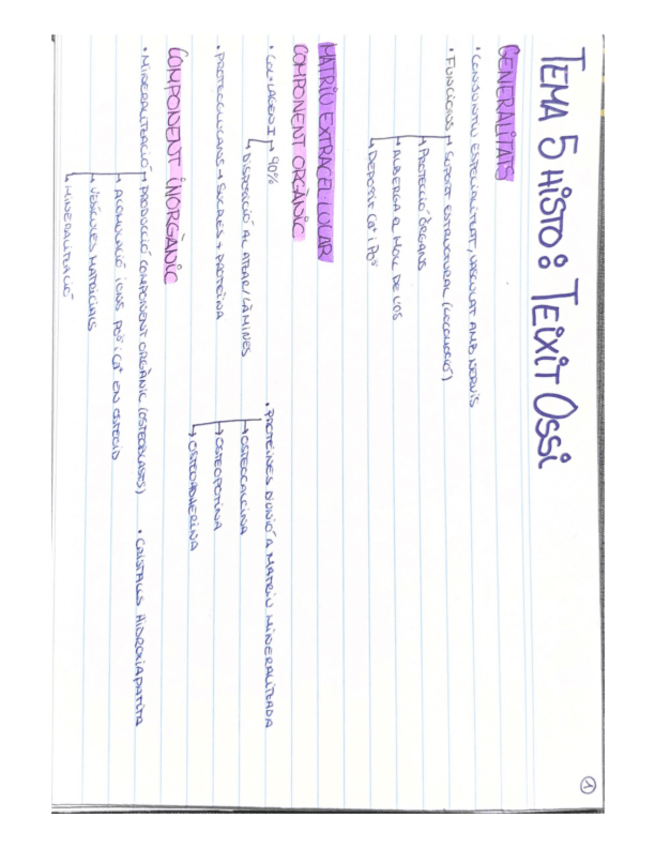 TEMA 5 HISTO: TEIXIT OSSI
GENERALITATS
• CONJUNTIU ESPECIALITZAT, VASCULAT AMB NERVIS
• FUNCIONS → SUPORT ESTRUCTURAL (LOCOMOCIÓ)
→ PROTECCIÓ ÒRGANS
→ ALBERGA A MOLL DE L'OS
→ DEPOSIT Ca⁺ i
MATRIU EXTRACEL·LULAR
COMPONENT ORGÀNIC
• COL·LAGEN I → 90%
→ DISPOSICIÓ AL ATZAR/LÀMINES
• PROTEOGLICANS → SUCRES + PROTEÏNA
• PROTEÏNES D'UNIÓ A MATRIU MINERALITZADA
→ OSTEOCALCINA
→ OSTEOPOTINA
→ OSTEOADHERINA
COMPONENT INORGÀNIC
• MINERALITZACIÓ → PRODUCCIÓ COMPONENT ORGÀNIC (OSTEOBLASTS)
→ ACUMULACIÓ IONS i Ca⁺ EN
→ VESÍCULES MATRICIALS
→ MINERALITZACIÓ
• CRISTALLS HIDROXIAPATITA
1